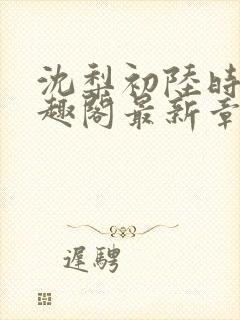 沈梨初陸時
趣閣最新章
遲騁